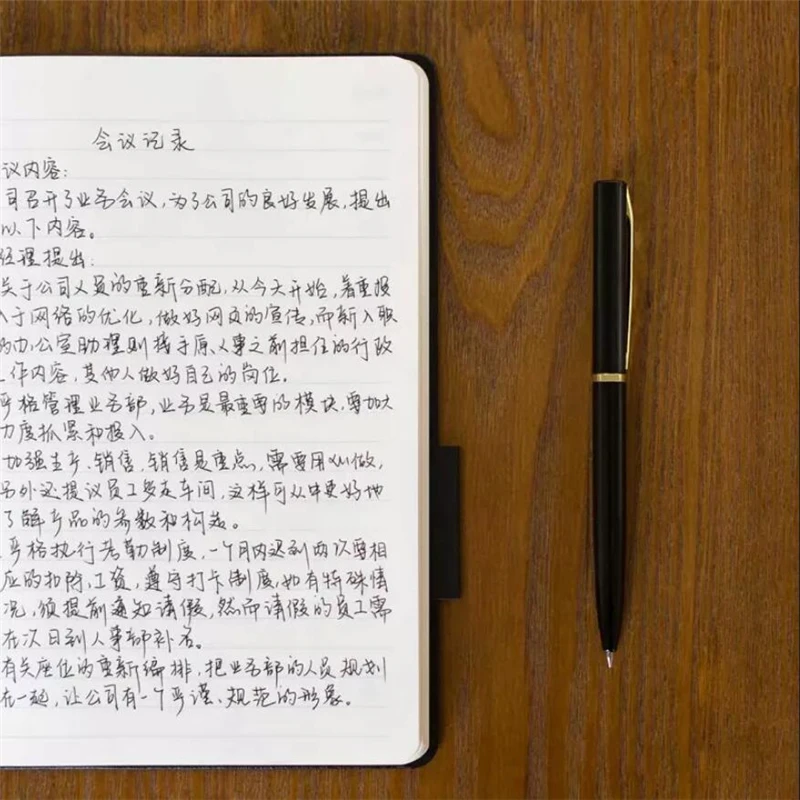 会议记录
议内容:
司召开了业务会议,为了公司的良好发展,提出
以下内容。
经理提出:
关于公司人员的重新分配,从今天开始,着重投
入于网络的优化,做好网页的宣传,而新入职
的办公室助理则接手原人事之前担任的行政
工作内容,其他人做好自己的岗位。
严格管理业务部,业务是最重要的模块,要加大
力度抓紧和投入。
加强生产、销售,销售是重点,需要用心做,
另外还提议员工多走车间,这样可从中更好地
了解产品的参数和构造。
严格执行考勤制度,一个月内迟到两次要相
应的扣除工资,遵守打卡制度,如有特殊情
况,须提前通知请假,然而请假的员工需
在次日到人事部补名。
有关座位的重新编排,把业务部的人员规划
在一起,让公司有一个严谨、规范的形象。